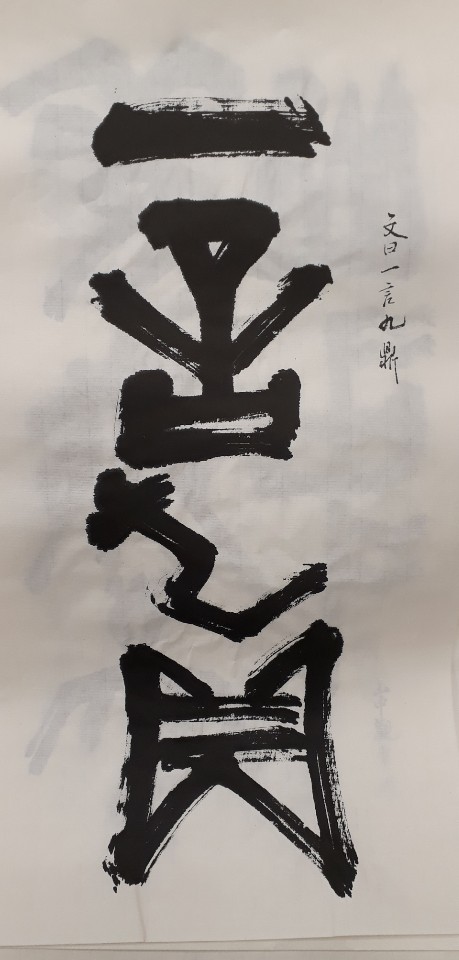 一言九鼎
文曰一言九鼎